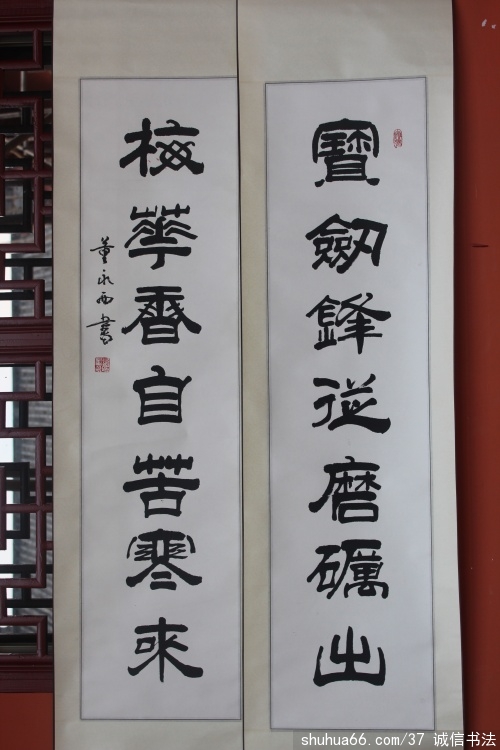 寶劔鋒從磨礪出
梅華香自苦寒來
董永西書
shuhua66.com/37 诚信书法